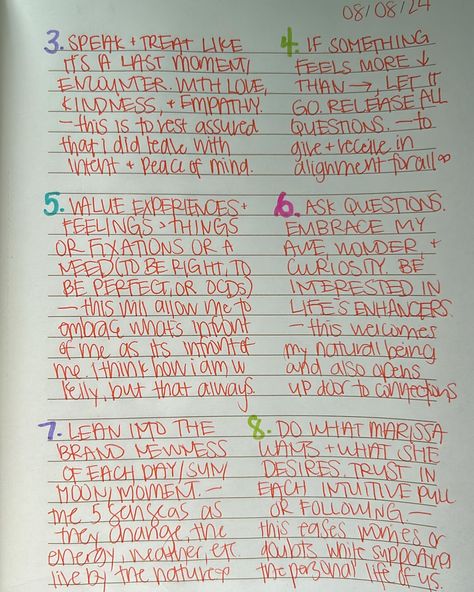 08/08/24
3. SPEAK + TREAT LIKE
IT'S A LAST MOMENT/
ENCOUNTER. WITH LOVE,
KINDNESS, + EMPATHY.
— this is to rest assured
that I did leave with
intent + peace of mind.
4. IF SOMETHING
FEELS MORE ↓
THAN →, LET IT
GO. RELEASE ALL
QUESTIONS. — to
give + receive in
alignment for all ∞
5. VALUE EXPERIENCES +
FEELINGS > THINGS
OR FIXATIONS OR A
NEED (TO BE RIGHT, TO
BE PERFECT, OR OCDs)
— this will allow me to
embrace what's infront
of me as its infront of
me. I think how i am w
Kelly, but that always.
6. ASK QUESTIONS.
EMBRACE MY
AWE, WONDER +
CURIOSITY. BE
INTERESTED IN
LIFE'S ENHANCERS.
— this welcomes
my natural being
and also opens
up door to connections
7. LEAN INTO THE
BRAND NEWNESS
OF EACH DAY/SUN/
MOON/MOMENT. —
the 5 senses as
they change, the
energy, weather, etc.
live by the nature
8. DO WHAT MARISSA
WANTS + WHAT SHE
DESIRES. TRUST IN
EACH INTUITIVE PULL
OR FOLLOWING. —
this eases worries or
doubts while supporting
the personal life of us.